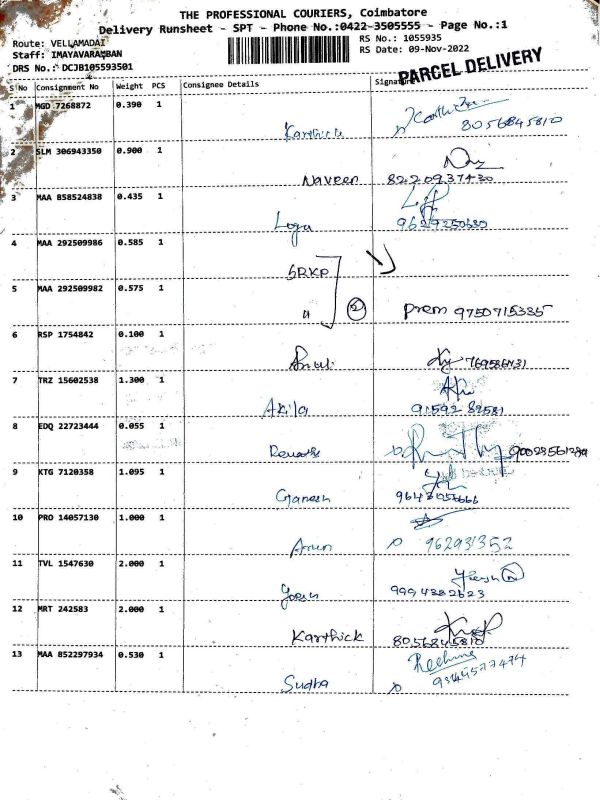 THE PROFESSIONAL COURIERS, Coimbatore
Delivery Runsheet - SPT - Phone No.:0422-3505555 - Page No.:1
Route: VELLAMADAI
RS No.: 1055935
Staff: IMAYAVARAMBAN
RS Date: 09-Nov-2022
DRS No.: DCJB105593501
PARCEL DELIVERY
S No Consignment No Weight PCS Consignee Details Signature
1 MGD 7268872 0.390 1
Karthick 8056845810
2 SLM 306943350 0.900 1
Naveen 8220937430
3 MAA 858524838 0.435 1
Loga 9629250680
4 MAA 292509986 0.585 1
SRKP
5 MAA 292509982 0.575 1
" 2 Prem 9750715335
6 RSP 1754842 0.100 1
7 TRZ 15602538 1.300 1
Akila 91592 82581
8 EDQ 22723444 0.055 1
Revathi
9 KTG 7120358 1.095 1
Ganesh
10 PRO 14057130 1.000 1
Arun 962931352
11 TVL 1547630 2.000 1
9994382623
12 MRT 242583 2.000 1
Karthick 8056845810
13 MAA 852297934 0.530 1
Sudha 9344577474